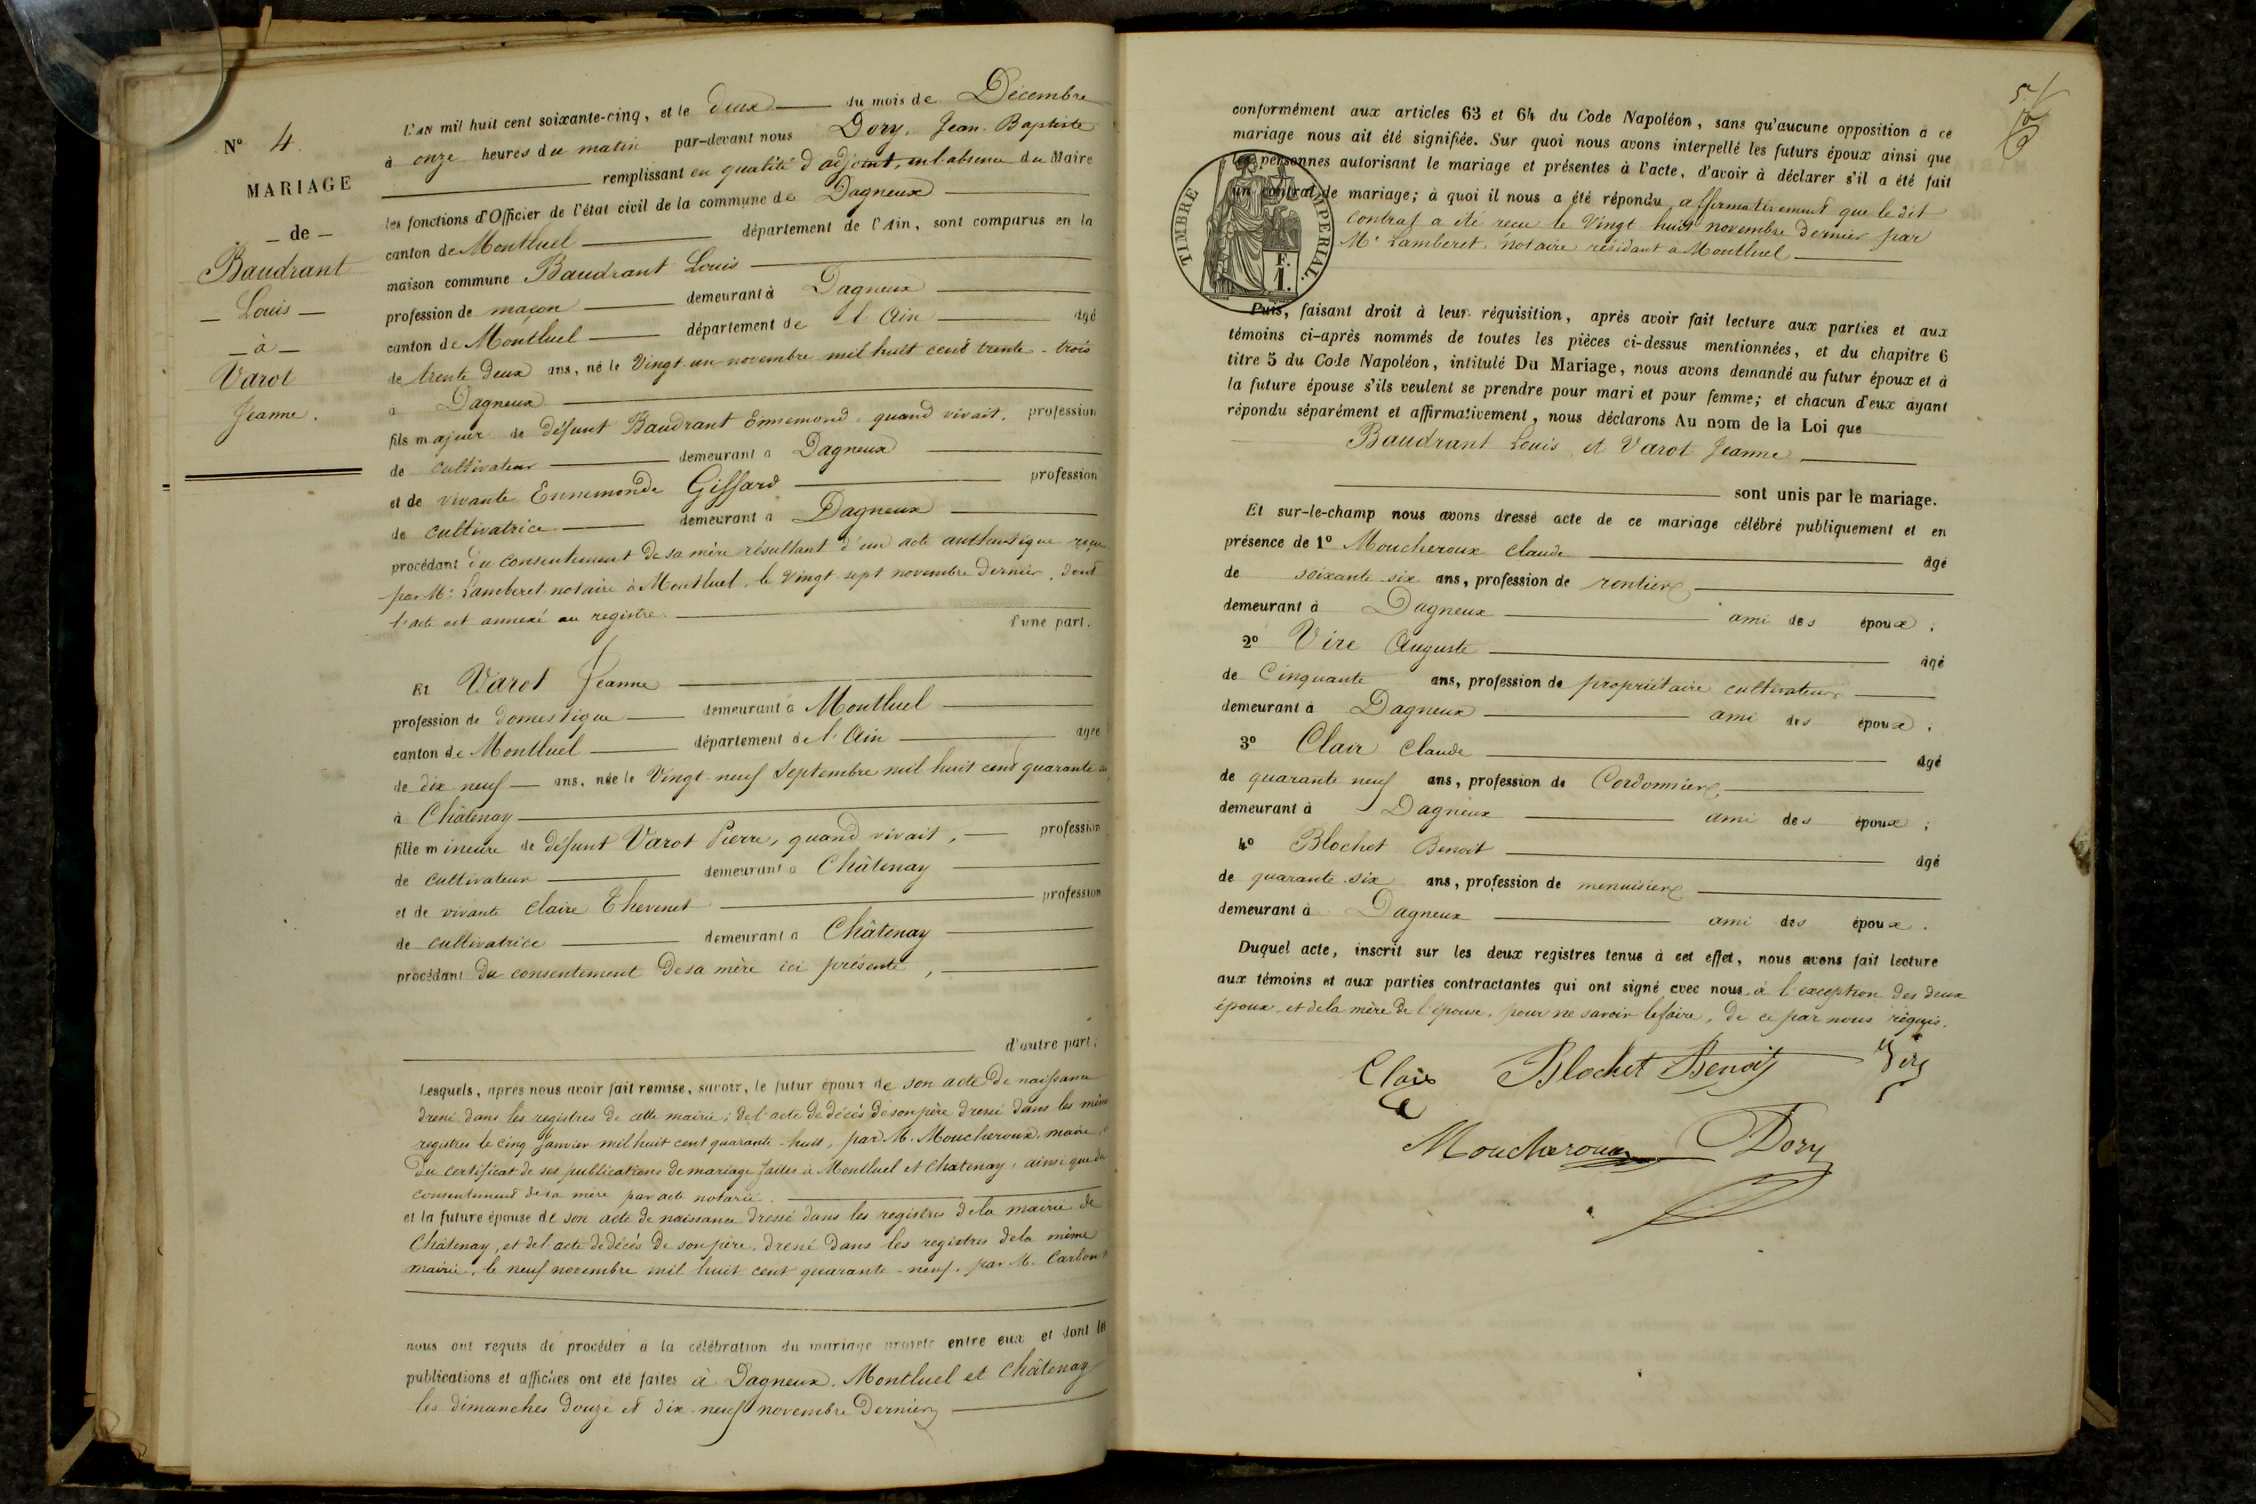 N° 4.
MARIAGE
— de —
Baudrant
— Louis —
— à —
Varot
Jeanne.
L'AN mil huit cent soixante-cinq, et le deux du mois de Décembre
à onze heures du matin par-devant nous Dory, Jean-Baptiste
remplissant en qualité d'adjoint, en l'absence du Maire
les fonctions d'Officier de l'état civil de la commune de Dagneux
canton de Montluel département de l'Ain, sont comparus en la
maison commune Baudrant Louis
profession de maçon demeurant à Dagneux
canton de Montluel département de l'Ain âgé
de trente deux ans, né le Vingt-un novembre mil huit cent trente-trois
à Dagneux
fils majeur de défunt Baudrant Ennemond, quand vivait, profession
de cultivateur demeurant à Dagneux
et de vivante Ennemonde Giffard profession
de cultivatrice demeurant à Dagneux
procédant du consentement de sa mère résultant d'un acte authentique reçu
par Me Lamberet notaire à Montluel, le vingt-sept novembre dernier, dont
l'acte est annexé au registre. d'une part.
Et Varot Jeanne
profession de domestique demeurant à Montluel
canton de Montluel département de l'Ain âgée
de dix neuf ans, née le Vingt-neuf Septembre mil huit cent quarante
à Châtenay
fille mineure de défunt Varot Pierre, quand vivait, profession
de cultivateur demeurant à Châtenay
et de vivante Claire Thevenet profession
de cultivatrice demeurant à Châtenay
procédant du consentement de sa mère ici présente,
d'autre part;
Lesquels, après nous avoir fait remise, savoir, le futur époux de son acte de naissance
dressé dans les registres de cette mairie; de l'acte de décès de son père dressé dans les mêmes
registres le cinq Janvier mil huit cent quarante-huit, par M. Moucheroux, maire,
du certificat de ses publications de mariage faites à Montluel et Chatenay, ainsi que du
consentement de sa mère par acte notarié.
et la future épouse de son acte de naissance dressé dans les registres de la mairie de
Châtenay, et de l'acte de décès de son père, dressé dans les registres de la même
mairie, le neuf novembre mil huit cent quarante-neuf, par M. Carbon
nous ont requis de procéder à la célébration du mariage projeté entre eux et dont les
publications et affiches ont été faites à Dagneux, Montluel et Châtenay
les dimanches douze et dix-neuf novembre dernier
conformément aux articles 63 et 64 du Code Napoléon, sans qu'aucune opposition à ce
mariage nous ait été signifiée. Sur quoi nous avons interpellé les futurs époux ainsi que
les personnes autorisant le mariage et présentes à l'acte, d'avoir à déclarer s'il a été fait
un contrat de mariage; à quoi il nous a été répondu affirmativement que le dit
contrat a été reçu le Vingt-huit novembre dernier par
Me Lamberet, notaire résidant à Montluel
TIMBRE IMPERIAL.
F.
1.
Puis, faisant droit à leur réquisition, après avoir fait lecture aux parties et aux
témoins ci-après nommés de toutes les pièces ci-dessus mentionnées, et du chapitre 6
titre 5 du Code Napoléon, intitulé Du Mariage, nous avons demandé au futur époux et à
la future épouse s'ils veulent se prendre pour mari et pour femme; et chacun d'eux ayant
répondu séparément et affirmativement, nous déclarons Au nom de la Loi que
Baudrant Louis, et Varot Jeanne
sont unis par le mariage.
Et sur-le-champ nous avons dressé acte de ce mariage célébré publiquement et en
présence de 1° Moucheroux Claude âgé
de soixante six ans, profession de rentier
demeurant à Dagneux ami des époux;
2° Vire Auguste âgé
de Cinquante ans, profession de propriétaire cultivateur
demeurant à Dagneux ami des époux;
3° Clair Claude âgé
de quarante neuf ans, profession de Cordonnier
demeurant à Dagneux ami des époux;
4° Blochet Benoit âgé
de quarante-six ans, profession de menuisier
demeurant à Dagneux ami des époux.
Duquel acte, inscrit sur les deux registres tenus à cet effet, nous avons fait lecture
aux témoins et aux parties contractantes qui ont signé avec nous, à l'exception des deux
époux, et de la mère de l'épouse, pour ne savoir le faire, de ce par nous requis.
Clair Blochet Benoit Vire
Moucheroux Dory